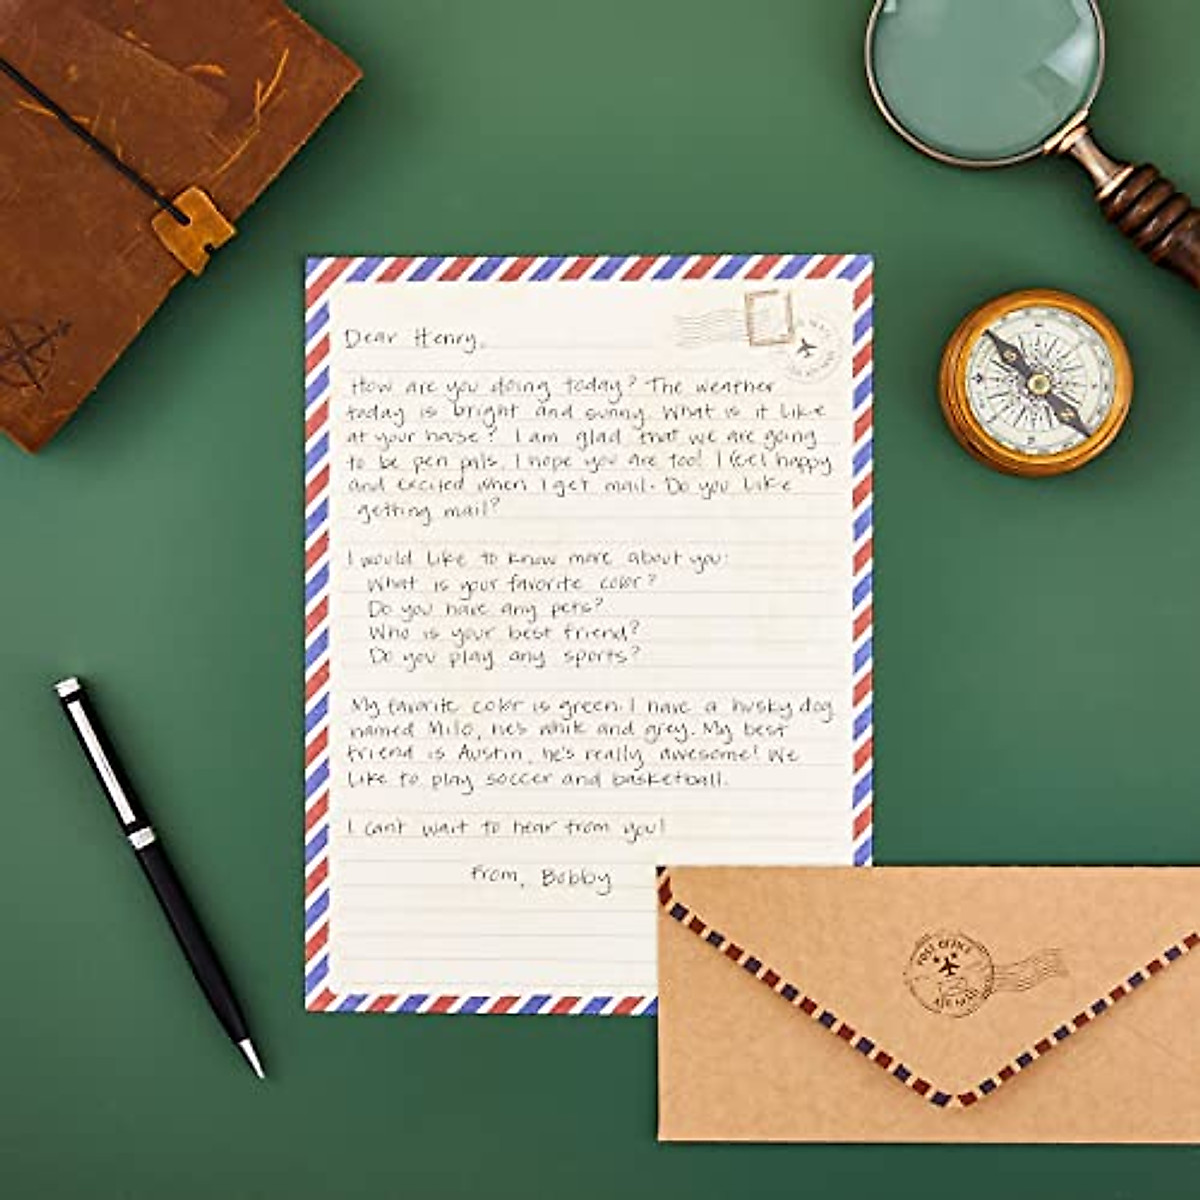 Dear Henry,
How are you doing today? The weather
today is bright and sunny. What is it like
at your house? I am glad that we are going
to be pen pals. I hope you are too! I feel happy
and excited when I get mail. Do you like
getting mail?
I would like to know more about you:
What is your favorite color?
Do you have any pets?
Who is your best friend?
Do you play any sports?
My favorite color is green. I have a husky dog
named Milo, he's white and grey. My best
friend is Austin, he's really awesome! We
like to play soccer and basketball.
I can't wait to hear from you!
From, Bobby
POST OFFICE
AIR MAIL